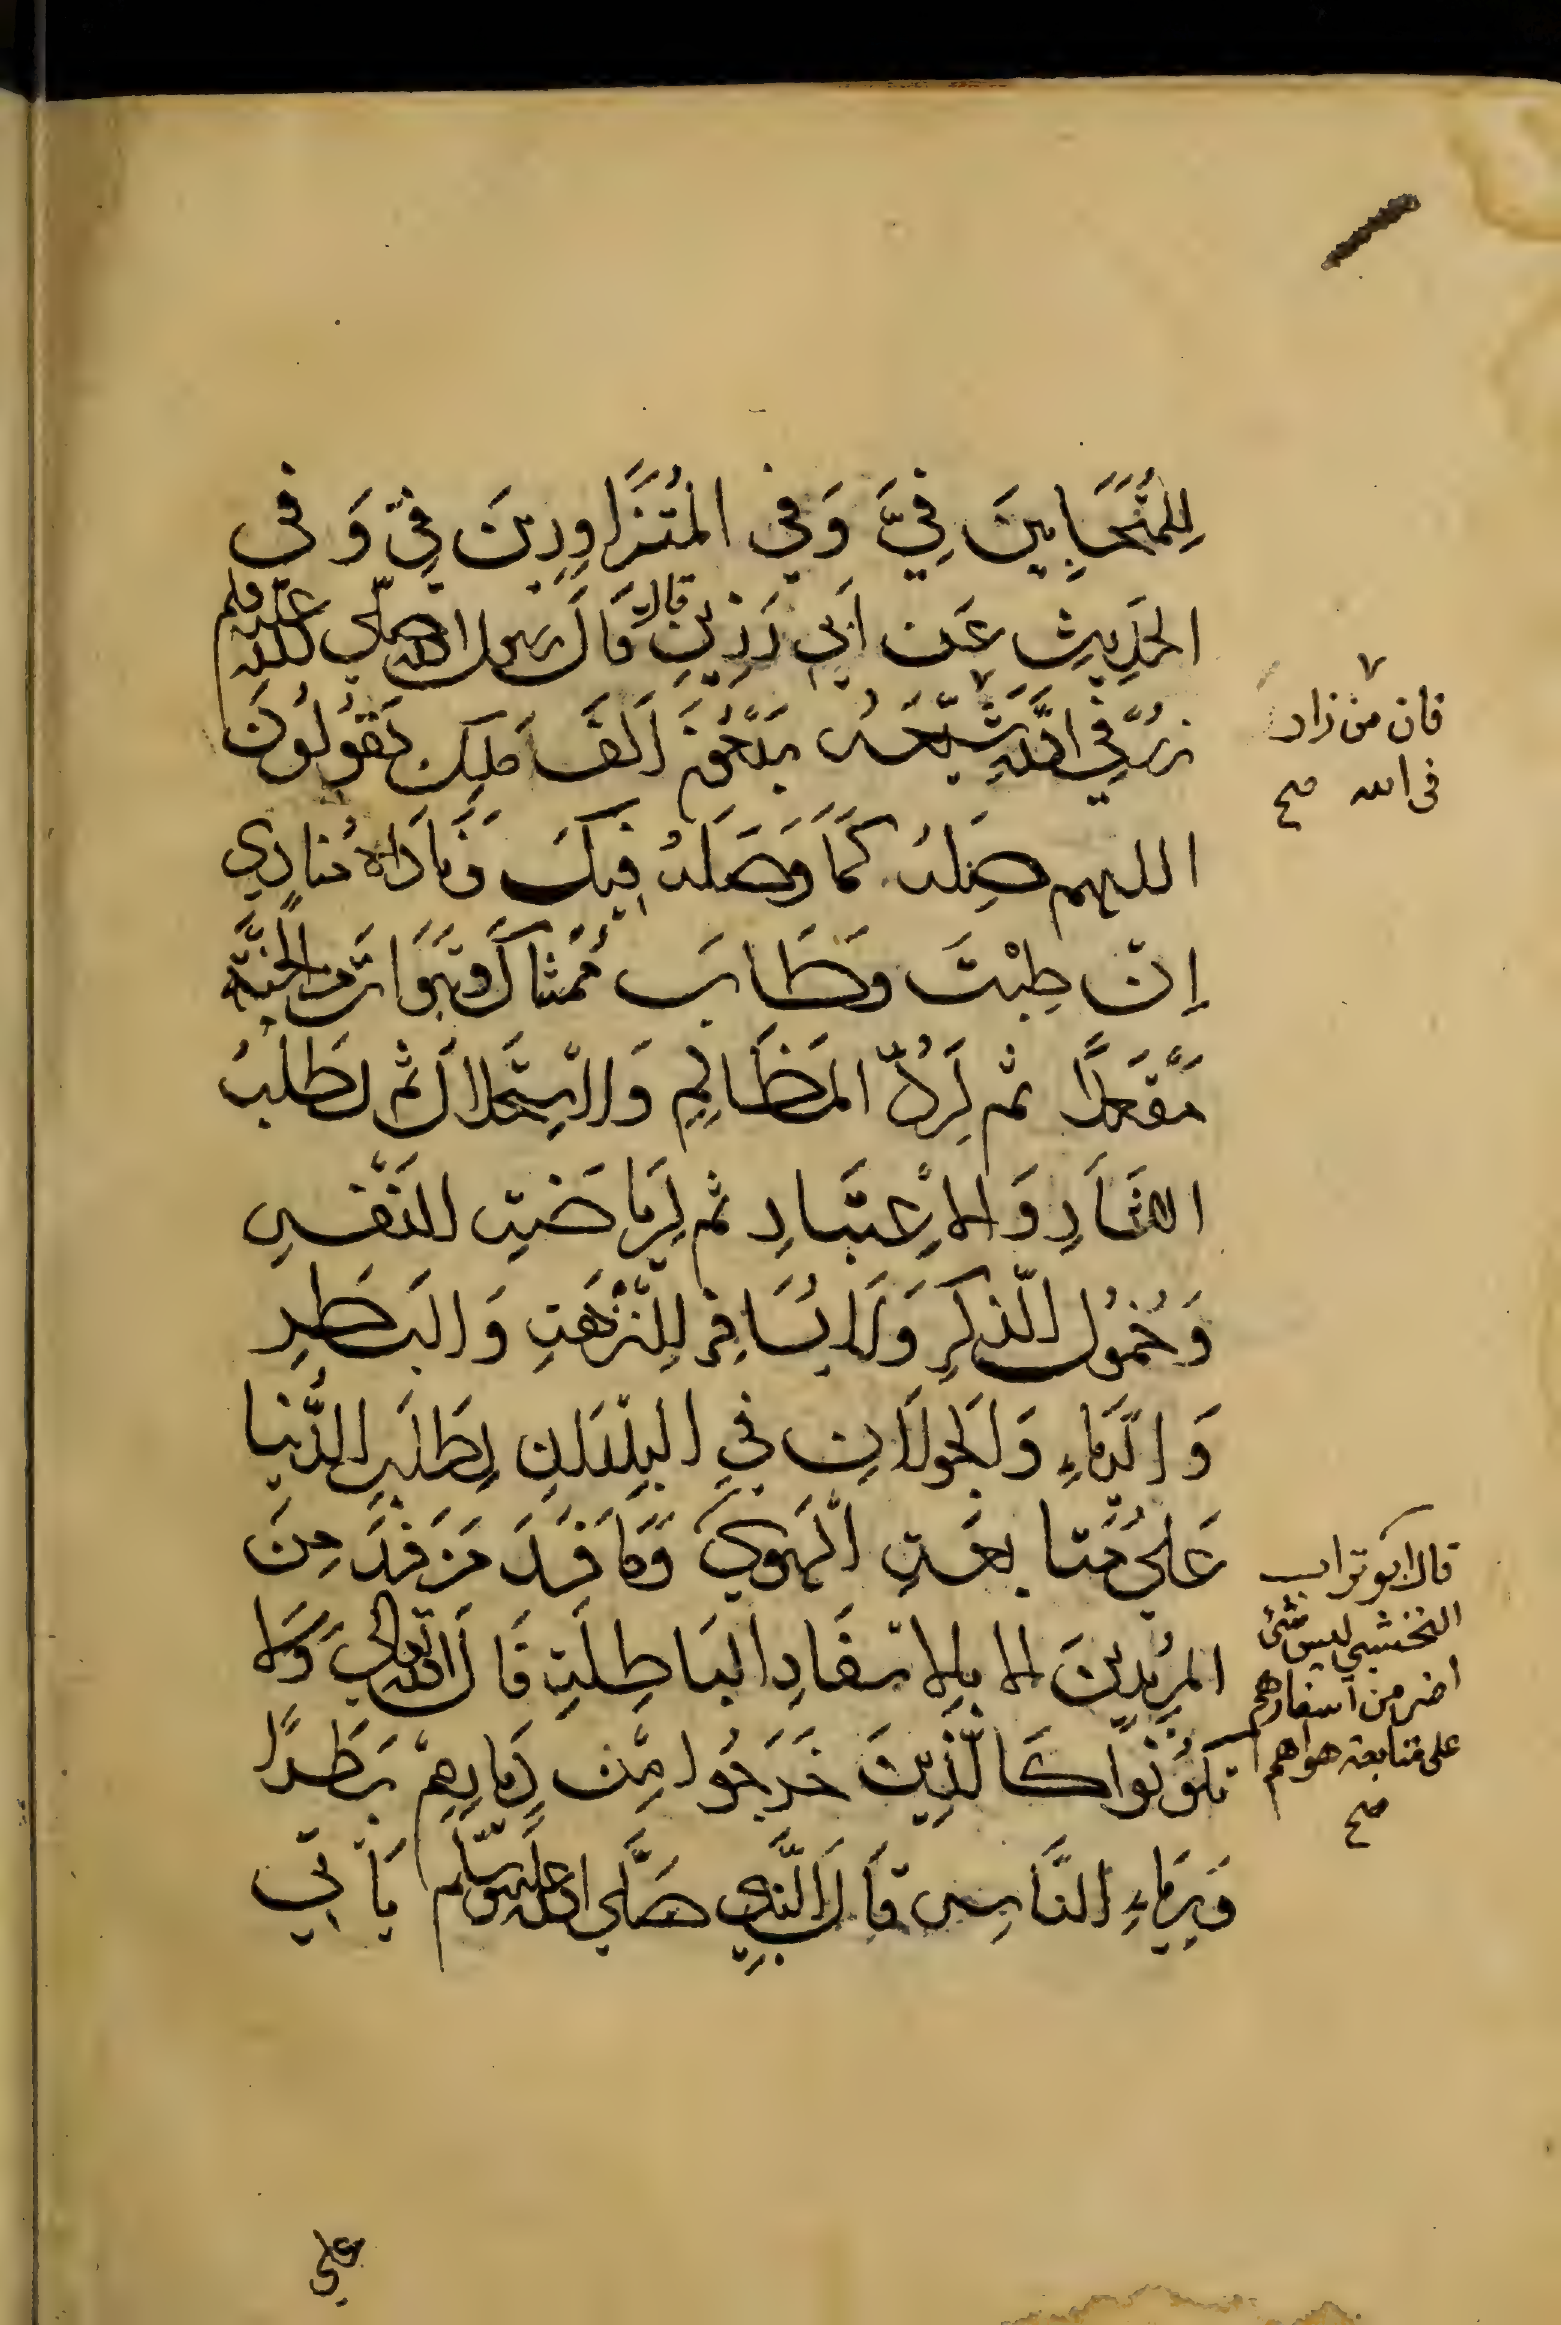 لِلْمُتَحَابِينَ فِيَّ وَفِي الْمُتَزَاوِرِينَ فِيَّ وَفي
الحَدِيثِ عَن أَبِي رَزِينٍ قال قَالَ رسول الله صلى الله عليه وسلم
زُرْ فِي اللَّهِ شَيَّعَهُ سَبْعُونَ أَلْفَ مَلَكٍ يَقُولُونَ
اللهم صِلْهُ كَمَا وَصَلَهُ فِيكَ وَنَادَاهُ مُنَادِي
إِنْ طِبْتَ وَطَابَ مَمْشَاكَ وَتَبَوَّاتَ مِنَ الْجَنَّةِ
مَقْعَدًا ثم لِرَدِّ المَظَالِمِ وَالاسْتِحْلَالِ ثم لِطَلَبِ
الاثَارِ وَالاعْتِبَارِ ثم لِرِيَاضَتِ النَّفْسِ
وَخُمُولِ الذِّكْرِ وَلَا يُسَافِرُ لِلنُّزْهَتِ وَالبَطَرِ
وَالرِّيَاءِ وَلجَوَلَانِ فِي البُلْدَانِ لِطَلَبِ الدُّنْيَا
عَلَى مُتَابَعَتِ الْهَوَى وَمَا فَسَدَ مَنْ فَسَدَ مِنَ
المُرِيدِينَ الا بِالاسْفَارِ البَاطِلَةِ قَالَ الله تعالى وَلَا
تَكُونُوا كَالَّذِينَ خَرَجُوا مِنْ دِيَارِهِمْ بَطَرًا
وَرِيَاءَ النَّاسِ قَالَ النَّبِي صَلَّى الله عَلَيْهِ وَسَلَّم يَأْتِي
فان من زار
فى الله صح
قال ابو تراب
النخشبي ليس شئ
اضر من اسفارهم
على متابعة هواهم
صح
علي